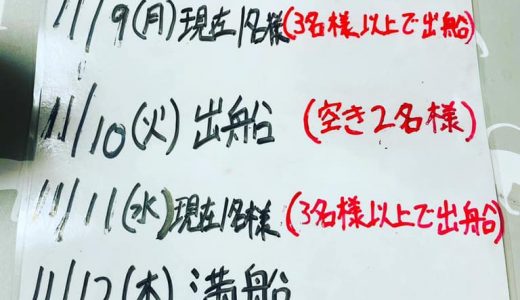 11/9(月)現在1名様(3名様以上で出船)
11/10(火)出船 (空き2名様)
11/11(水)現在1名様(3名様以上で出船)
11/12(木)満船